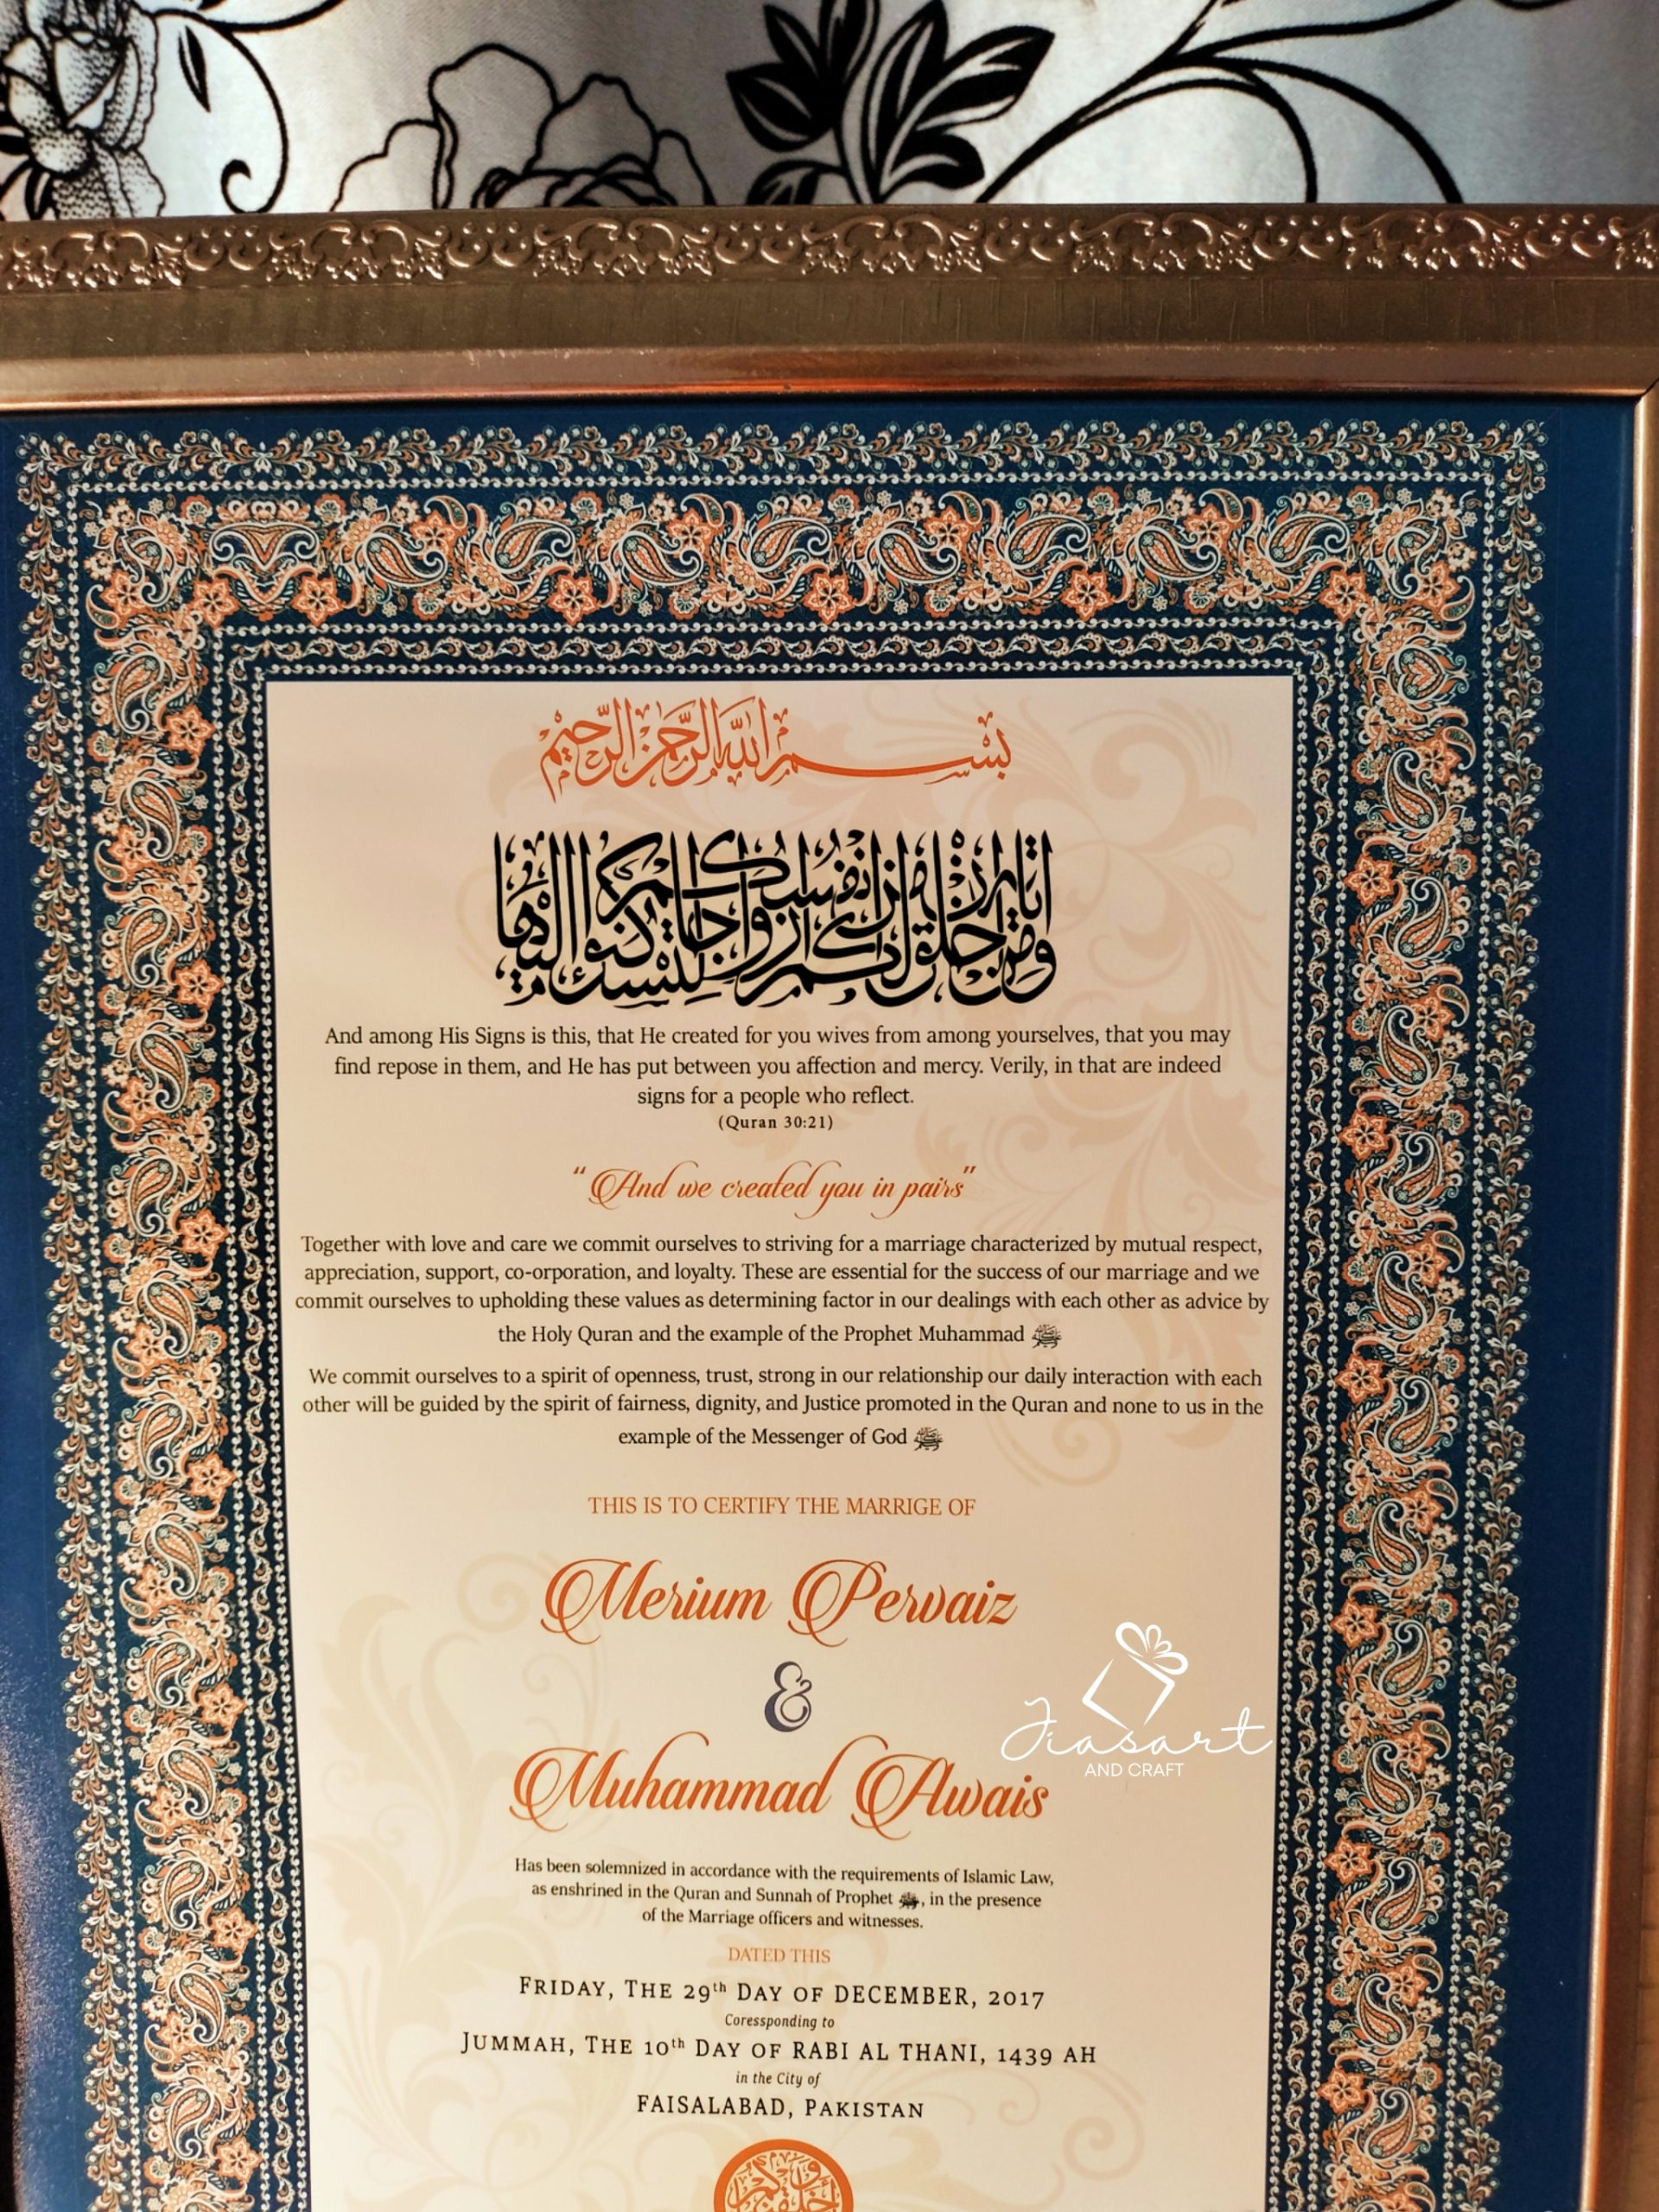 بسم الله الرحمن الرحيم
ومن اياته ان خلق لكم من انفسكم ازواجا لتسكنوا اليها
And among His Signs is this, that He created for you wives from among yourselves, that you may
find repose in them, and He has put between you affection and mercy. Verily, in that are indeed
signs for a people who reflect.
(Quran 30:21)
“And we created you in pairs”
Together with love and care we commit ourselves to striving for a marriage characterized by mutual respect,
appreciation, support, co-orporation, and loyalty. These are essential for the success of our marriage and we
commit ourselves to upholding these values as determining factor in our dealings with each other as advice by
the Holy Quran and the example of the Prophet Muhammad ﷺ
We commit ourselves to a spirit of openness, trust, strong in our relationship our daily interaction with each
other will be guided by the spirit of fairness, dignity, and Justice promoted in the Quran and none to us in the
example of the Messenger of God ﷺ
THIS IS TO CERTIFY THE MARRIGE OF
Merium Pervaiz
&
Muhammad Awais
Jiasart
AND CRAFT
Has been solemnized in accordance with the requirements of Islamic Law,
as enshrined in the Quran and Sunnah of Prophet ﷺ, in the presence
of the Marriage officers and witnesses.
DATED THIS
FRIDAY, THE 29th DAY OF DECEMBER, 2017
Coressponding to
JUMMAH, THE 10th DAY OF RABI AL THANI, 1439 AH
in the City of
FAISALABAD, PAKISTAN